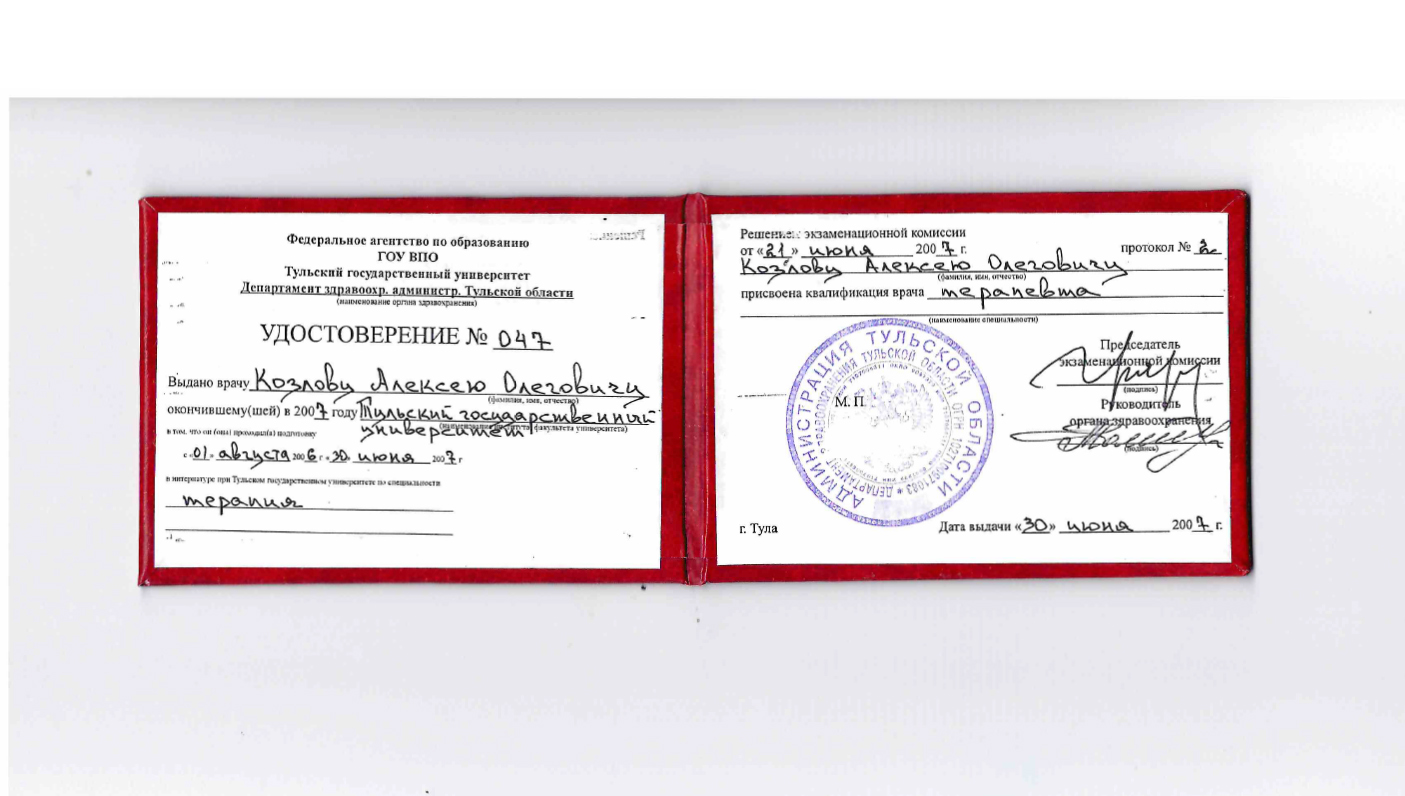 Федеральное агентство по образованию
ГОУ ВПО
Тульский государственный университет
Департамент здравоохр. администр. Тульской области
(наименование органа здравоохранения)
УДОСТОВЕРЕНИЕ № 047
Выдано врачу Козлову Алексею Олеговичу
(фамилия, имя, отчество)
окончившему(шей) в 2007 году Тульский государственный
университет
(наименование института, факультета университета)
в том, что он (она) проходил(а) подготовку
с «01» августа 2006 г «30» июня 2007 г
в интернатуре при Тульском государственном университете по специальности
терапия
Решением экзаменационной комиссии
от «21» июня 2007 г. протокол № 2
Козлову Алексею Олеговичу
(фамилия, имя, отчество)
присвоена квалификация врача терапевта
(наименование специальности)
Председатель
экзаменационной комиссии
(подпись)
Руководитель
органа здравоохранения
(подпись)
М. П.
АДМИНИСТРАЦИЯ ТУЛЬСКОЙ ОБЛАСТИ
ДЕПАРТАМЕНТ ЗДРАВООХРАНЕНИЯ ТУЛЬСКОЙ ОБЛАСТИ ОГРН
г. Тула
Дата выдачи «30» июня 2007 г.